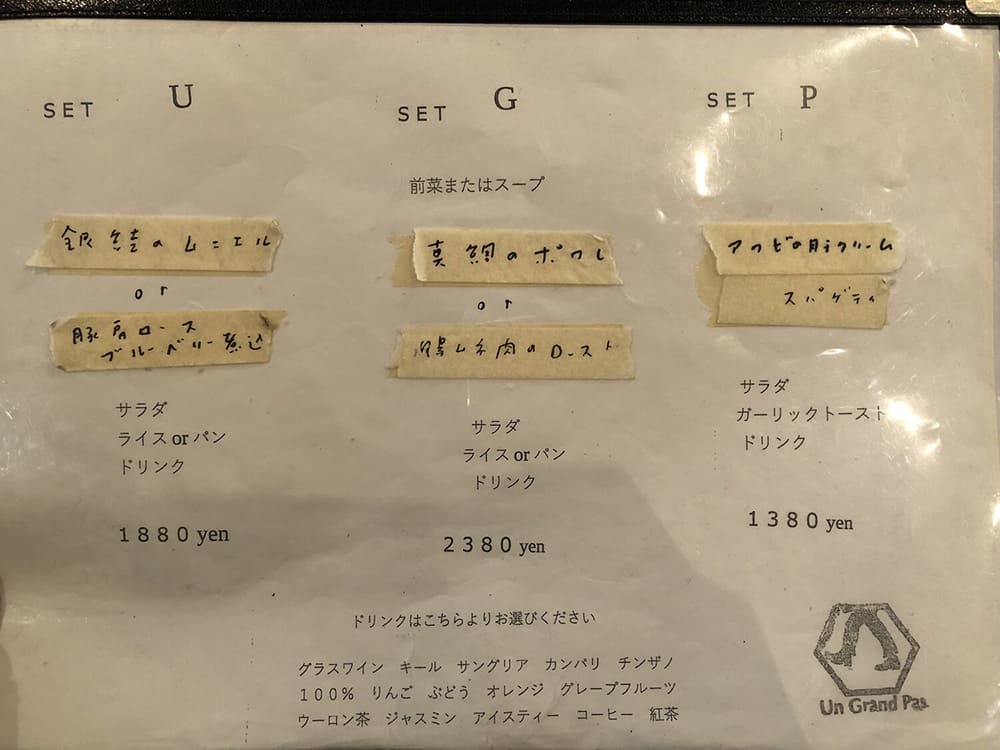 SET U
銀鮭のムニエル
or
豚肩ロース
ブルーベリー煮込
サラダ
ライス or パン
ドリンク
1880 yen
SET G
前菜またはスープ
真鯛のポワレ
or
ネ肉のロースト
サラダ
ライス or パン
ドリンク
2380 yen
SET P
アワビの肝クリーム
スパゲティ
サラダ
ガーリックトースト
ドリンク
1380 yen
ドリンクはこちらよりお選びください
グラスワイン キール サングリア カンパリ チンザノ
100% りんご ぶどう オレンジ グレープフルーツ
ウーロン茶 ジャスミン アイスティー コーヒー 紅茶
Un Grand Pas